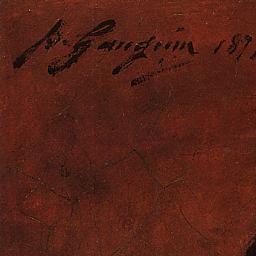 P. Gauguin 189